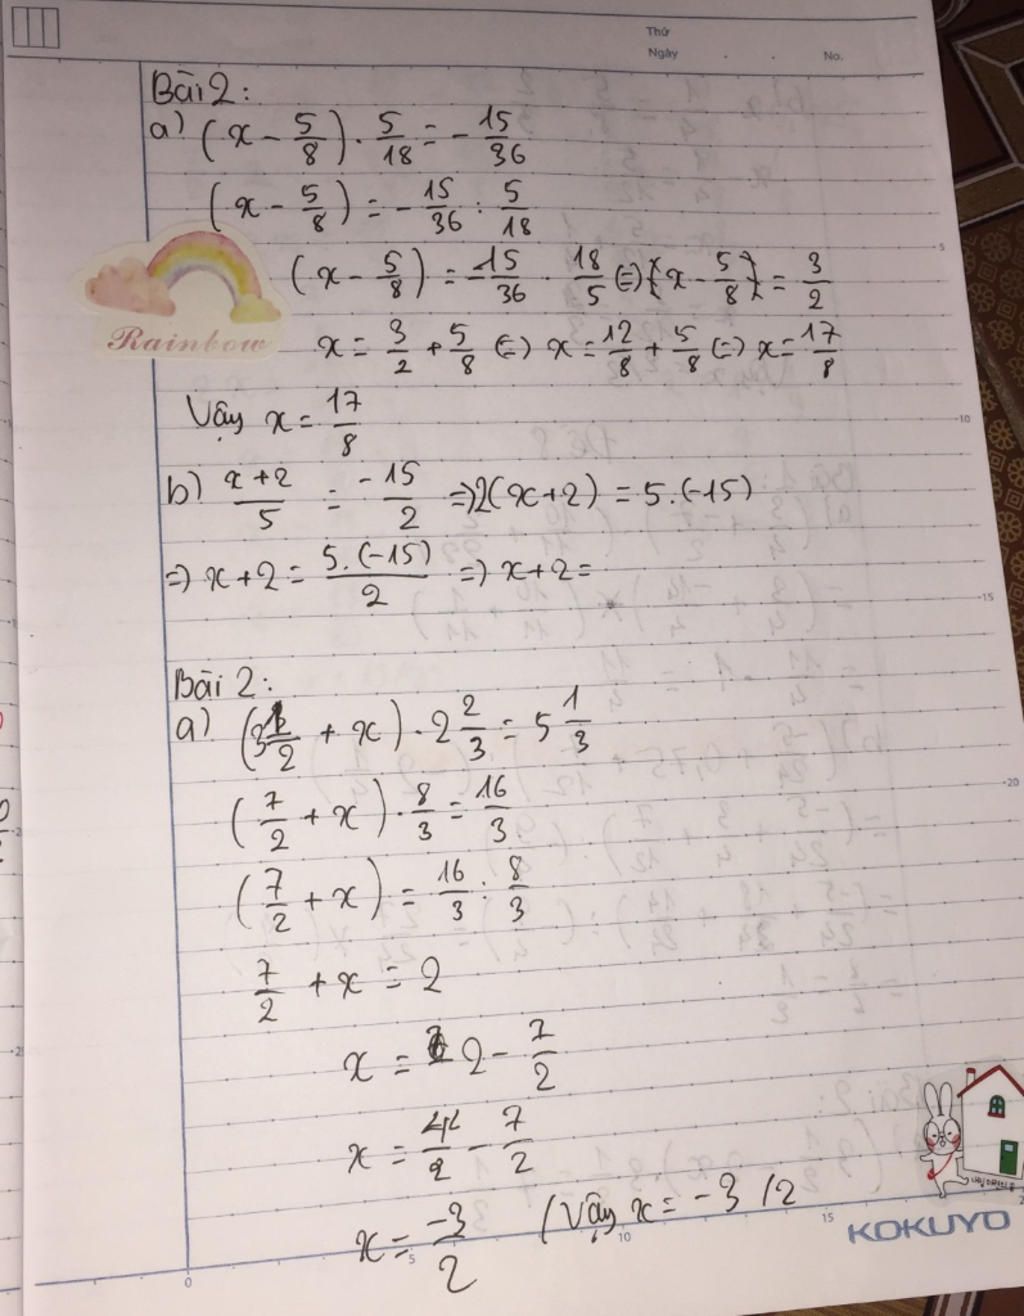 Thứ
Ngày . . No.
Bài 2:
a) (x - 5/8) . 5/18 = - 15/36
(x - 5/8) = - 15/36 : 5/18
(x - 5/8) = -15/36 . 18/5 (=) (x - 5/8) = 3/2
Rainbow
x = 3/2 + 5/8 (=) x = 12/8 + 5/8 (=) x = 17/8
Vậy x = 17/8
b) x+2/5 = -15/2 => 2(x+2) = 5.(-15)
=> x+2 = 5.(-15)/2 => x+2 =
Bài 2:
a) (3 1/2 + x) . 2 2/3 = 5 1/3
(7/2 + x) . 8/3 = 16/3
(7/2 + x) = 16/3 : 8/3
7/2 + x = 2
x = 2 - 7/2
x = 4/2 - 7/2
x = -3/2 (Vậy x = -3/2
KOKUYO
5
10
15
20
0
5
10
15